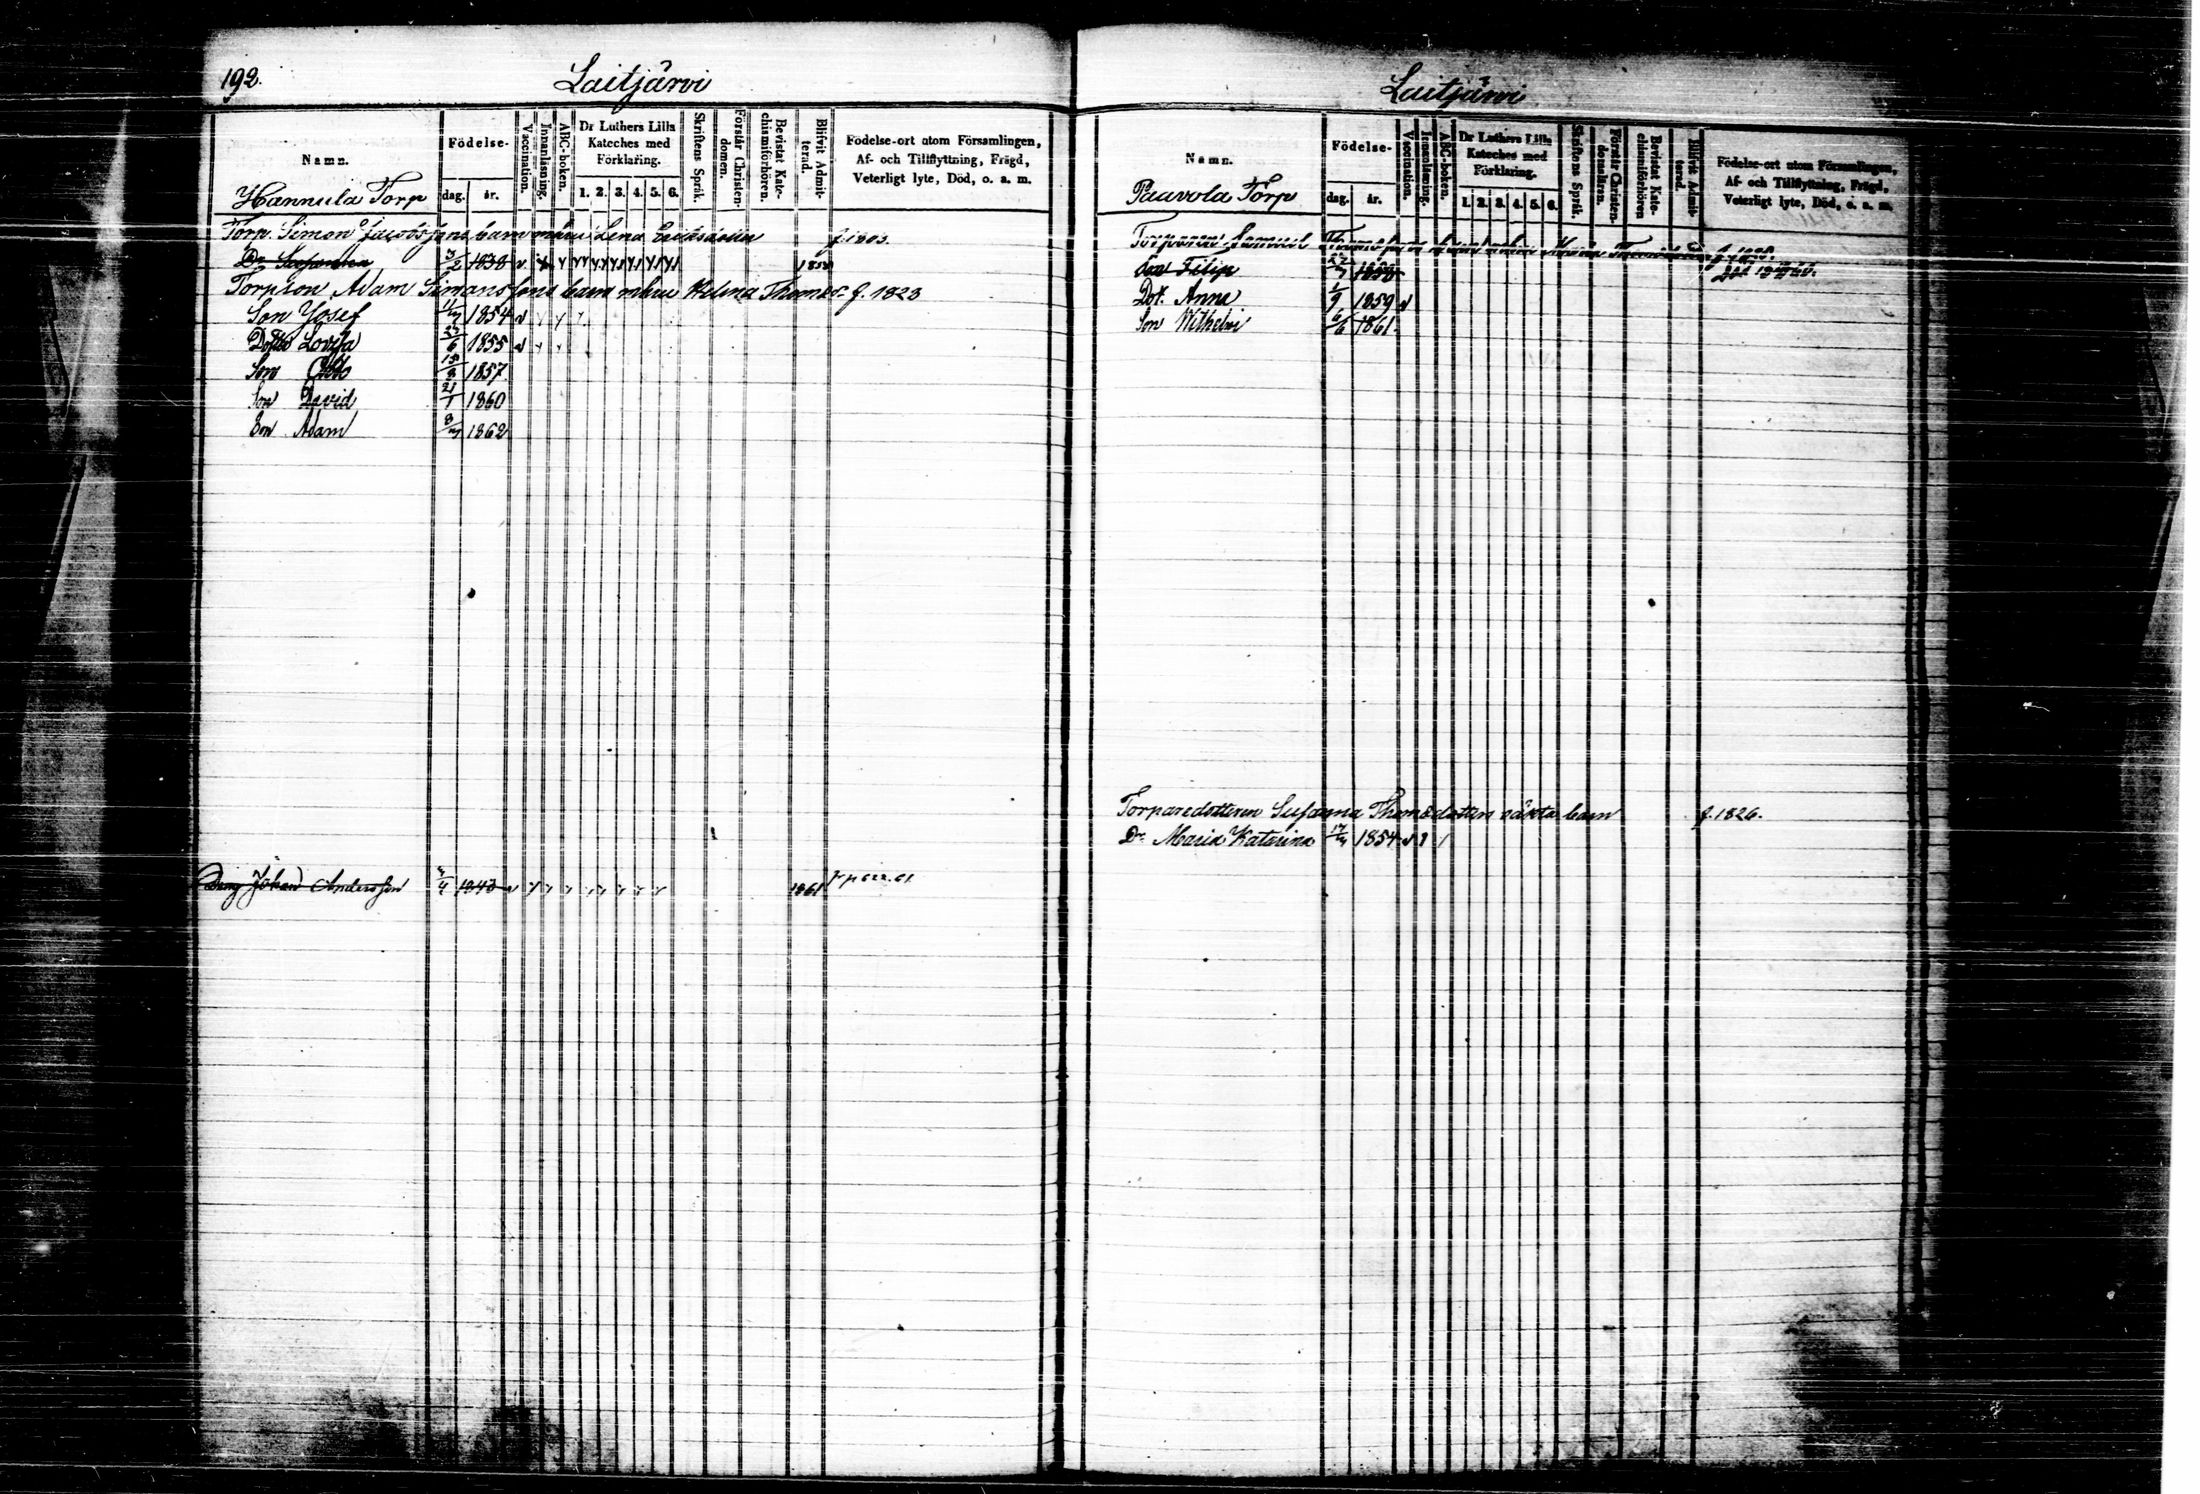 192.
Laitjärvi
Namn.
Födelse-
dag. år.
Vaccination.
Innanläsning.
ABC-boken.
Dr Luthers Lilla Kateches med Förklaring.
1. 2. 3. 4. 5. 6.
Skriftens Språk.
Förstår Christendomen.
Bevistat Katechismiförhören.
Blifvit Admitterad.
Födelse-ort utom Församlingen,
Af- och Tillflyttning, Frägd,
Veterligt lyte, Död, o. a. m.
Hannula Torp
Torp. Simon Jacobssons barn m hu Lena f. 1803.
Dr 3/2 1838
Torpson Adam Simonssons barn m hu Helena Thomæd. f. 1823
Son Josef 1854
Lovisa 1855
Son Otto 15/8 1857
Son David 21/1 1860
Son Adam 1862
Johan Andersson 1843 1861
Laitjärvi
Namn.
Födelse-
dag. år.
Vaccination.
Innanläsning.
ABC-boken.
Dr Luthers Lilla Kateches med Förklaring.
1. 2. 3. 4. 5. 6.
Skriftens Språk.
Förstår Christendomsläran.
Bevistat Katechismiförhören
Blifvit Admitterad.
Födelse-ort utom Församlingen,
Af- och Tillflyttning, Frägd,
Veterligt lyte, Död, o. a. m.
Paavola Torp
Torparen Samuel
Son Filip 1858
Dot. Anna 1/9 1859
Son Wilhelm 6/6 1861
Torparedotteren Susanna Thomædotters oäkta barn f. 1826.
Dr Maria Katarina 1854